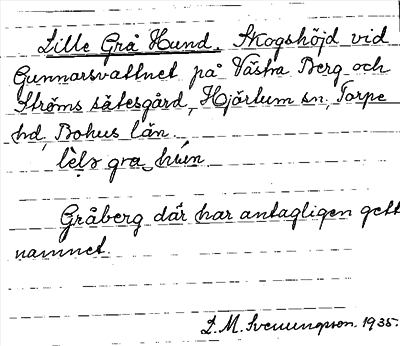 Lille Grå Hund. Skogshöjd vid
Gunnarsvattnet på Västra Berg och
Ströms sätesgård, Hjärtum sn, Torpe
hd, Bohus län.
gra
Gråberg där har antagligen gett
namnet.
D. M. Svenungsson. 1935.